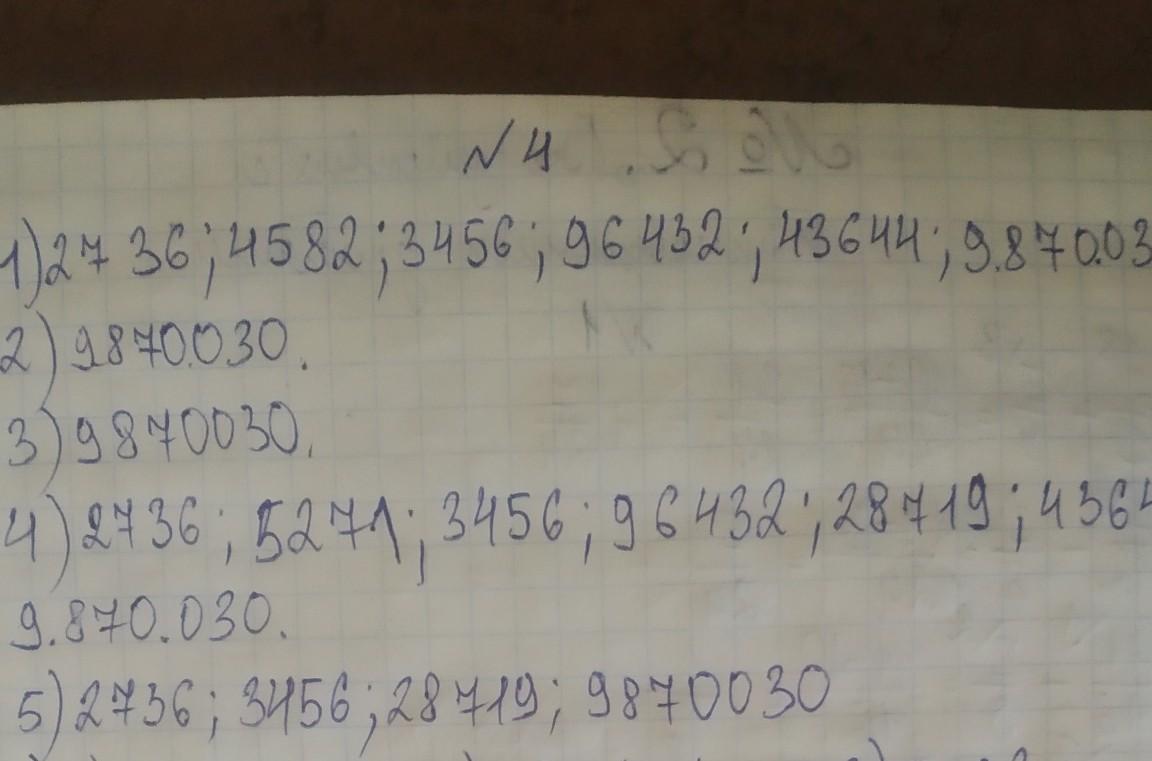 № 4
1) 2736; 4582; 3456; 96432; 43644; 9.870.03
2) 9870.030.
3) 9870030.
4) 2736; 5271; 3456; 96432; 28719; 4364
9.870.030.
5) 2736; 3456; 28719; 9870030